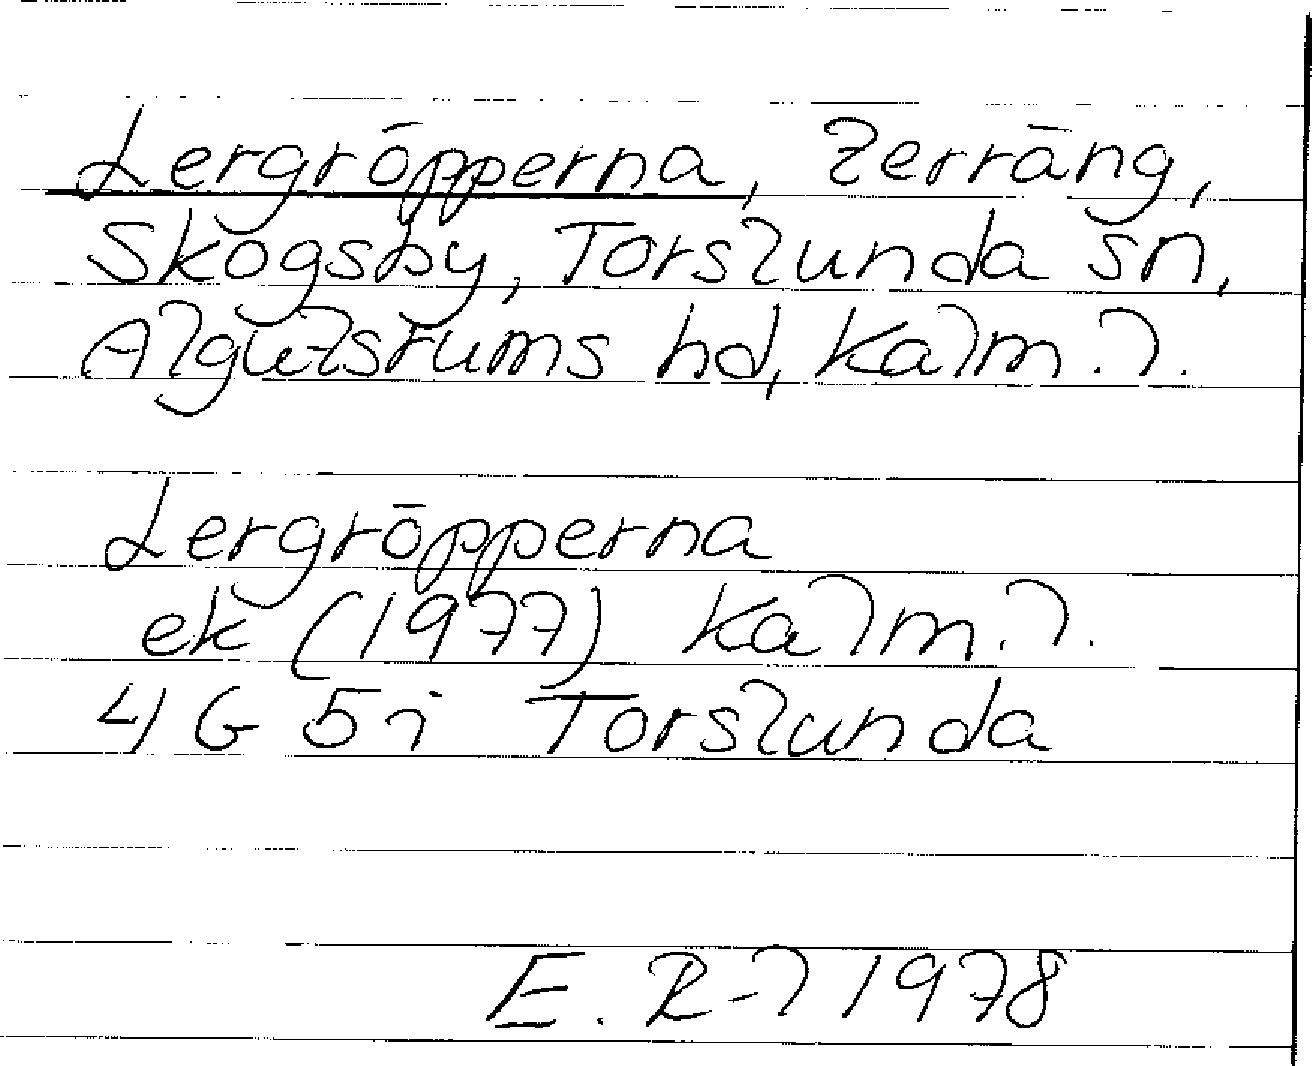 Lergröpperna, lerräng,
Skogsby, Torslunda sn,
Algutsrums hd, Kalm. l.
Lergröpperna
ek (1977) Kalm. l.
4 G 5 i Torslunda
E. R-l 1978